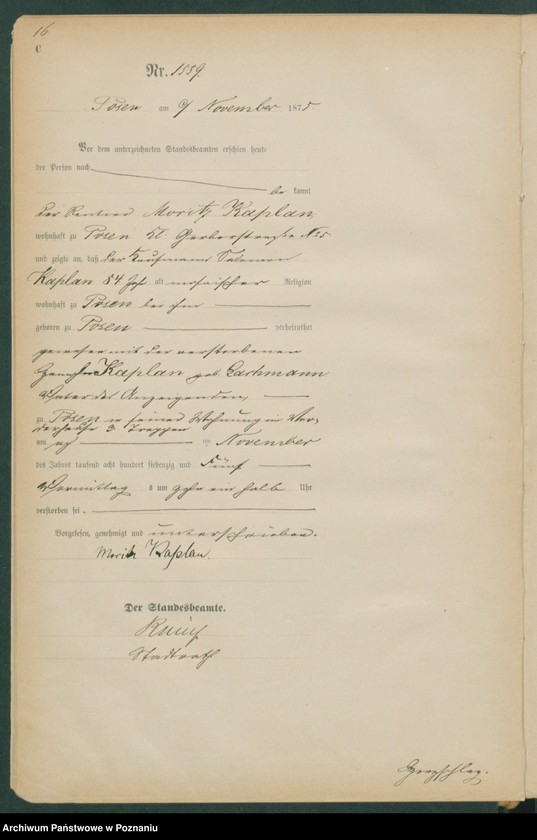 16
C
Nr. 1559.
Posen am 9 November 1875
Vor dem unterzeichneten Standesbeamten erschien heute
der Person nach
be kannt
der Rentier Moritz Kaplan
wohnhaft zu Posen kl. Gerberstraße No
und zeigte an, daß der Kaufmann Salomon
Kaplan 84 Jahr alt mosaischer Religion
wohnhaft zu Posen bei ihm
geboren zu Posen verheirathet
gewesen mit der verstorbenen
Kaplan geb. Lachmann
Vater des Anzeigenden,
zu Posen in seiner Wohnung im Vor-
derhause 3 Treppen
am ten November
des Jahres tausend acht hundert siebenzig und Fünf
Vormittags um ein halb Uhr
verstorben sei.
Vorgelesen, genehmigt und unterschrieben.
Moritz Kaplan.
Der Standesbeamte.
Stadtrath
Herzschlag.
Archiwum Państwowe w Poznaniu